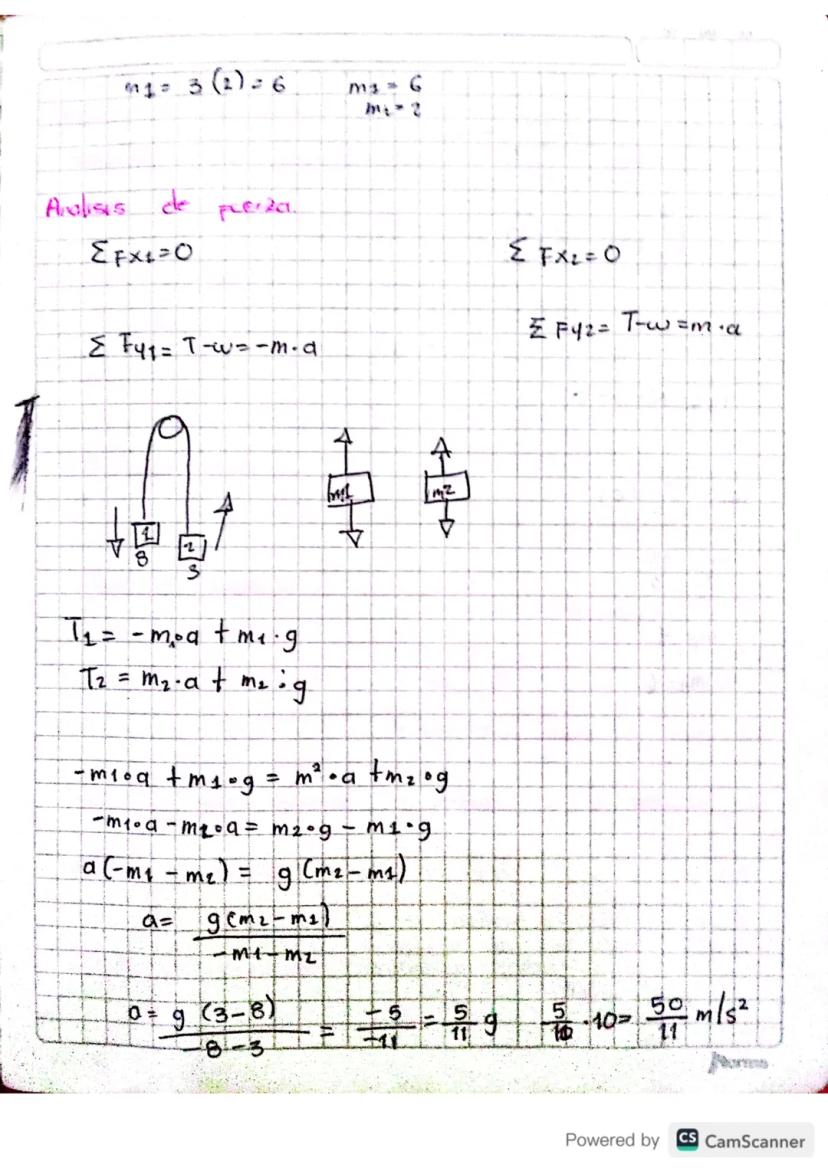 m1 = 3 (2) = 6 m1 = 6
m2 = 2
Analisis de fuerza.
Σ Fx1 = 0 Σ Fx2 = 0
Σ Fy1 = T - w = -m · a Σ Fy2 = T - w = m · a
1 2 m1 m2
8 3
T1 = -m1 · a + m1 · g
T2 = m2 · a + m2 · g
-m1 · a + m1 · g = m² · a + m2 · g
-m1 · a - m2 · a = m2 · g - m1 · g
a (-m1 - m2) = g (m2 - m1)
a = g (m2 - m1)
-m1 - m2
a = g (3 - 8) / -8 - 3 = -5 / -11 = 5 / 11 g 5 / · 10 = 50 / 11 m/s²
Norma
Powered by CS CamScanner